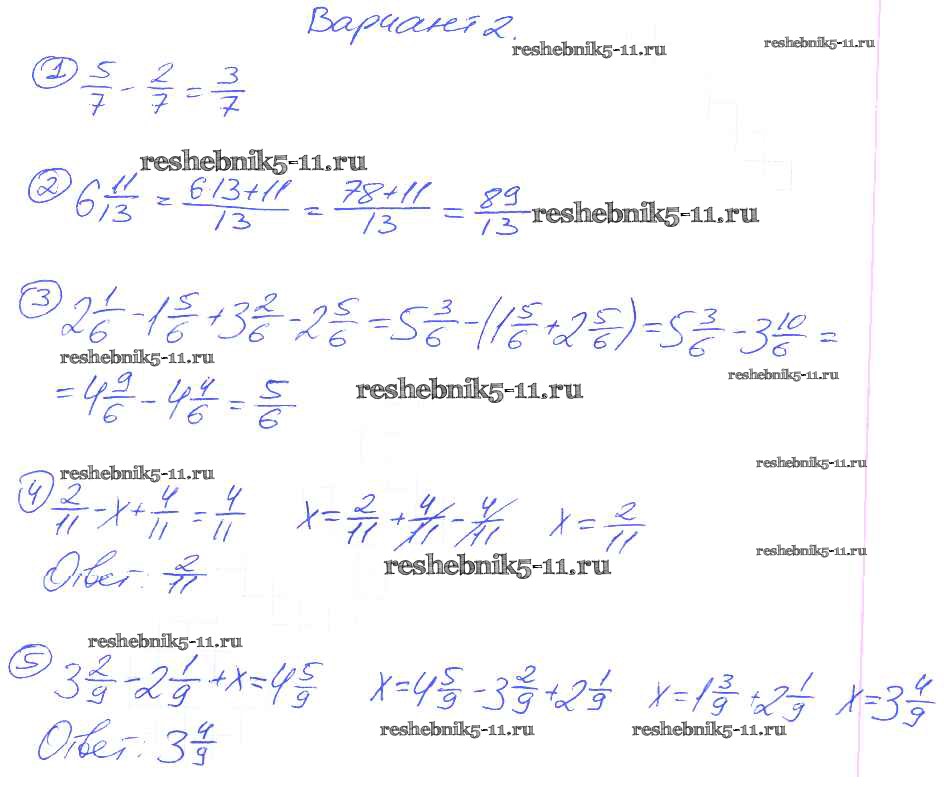 Вариант 2.
reshebnik5-11.ru reshebnik5-11.ru
① 5/7 - 2/7 = 3/7
reshebnik5-11.ru
② 6 11/13 = (6·13+11)/13 = (78+11)/13 = 89/13 reshebnik5-11.ru
③ 2 1/6 - 1 5/6 + 3 2/6 - 2 5/6 = 5 3/6 - (1 5/6 + 2 5/6) = 5 3/6 - 3 10/6 =
reshebnik5-11.ru reshebnik5-11.ru
= 4 9/6 - 4 4/6 = 5/6 reshebnik5-11.ru
reshebnik5-11.ru reshebnik5-11.ru
④ 2/11 - x + 4/11 = 4/11 x = 2/11 + 4/11 - 4/11 x = 2/11
Ответ: 2/11 reshebnik5-11.ru reshebnik5-11.ru
reshebnik5-11.ru
⑤ 3 2/9 - 2 1/9 + x = 4 5/9 x = 4 5/9 - 3 2/9 + 2 1/9 x = 1 3/9 + 2 1/9 x = 3 4/9
reshebnik5-11.ru reshebnik5-11.ru
Ответ: 3 4/9